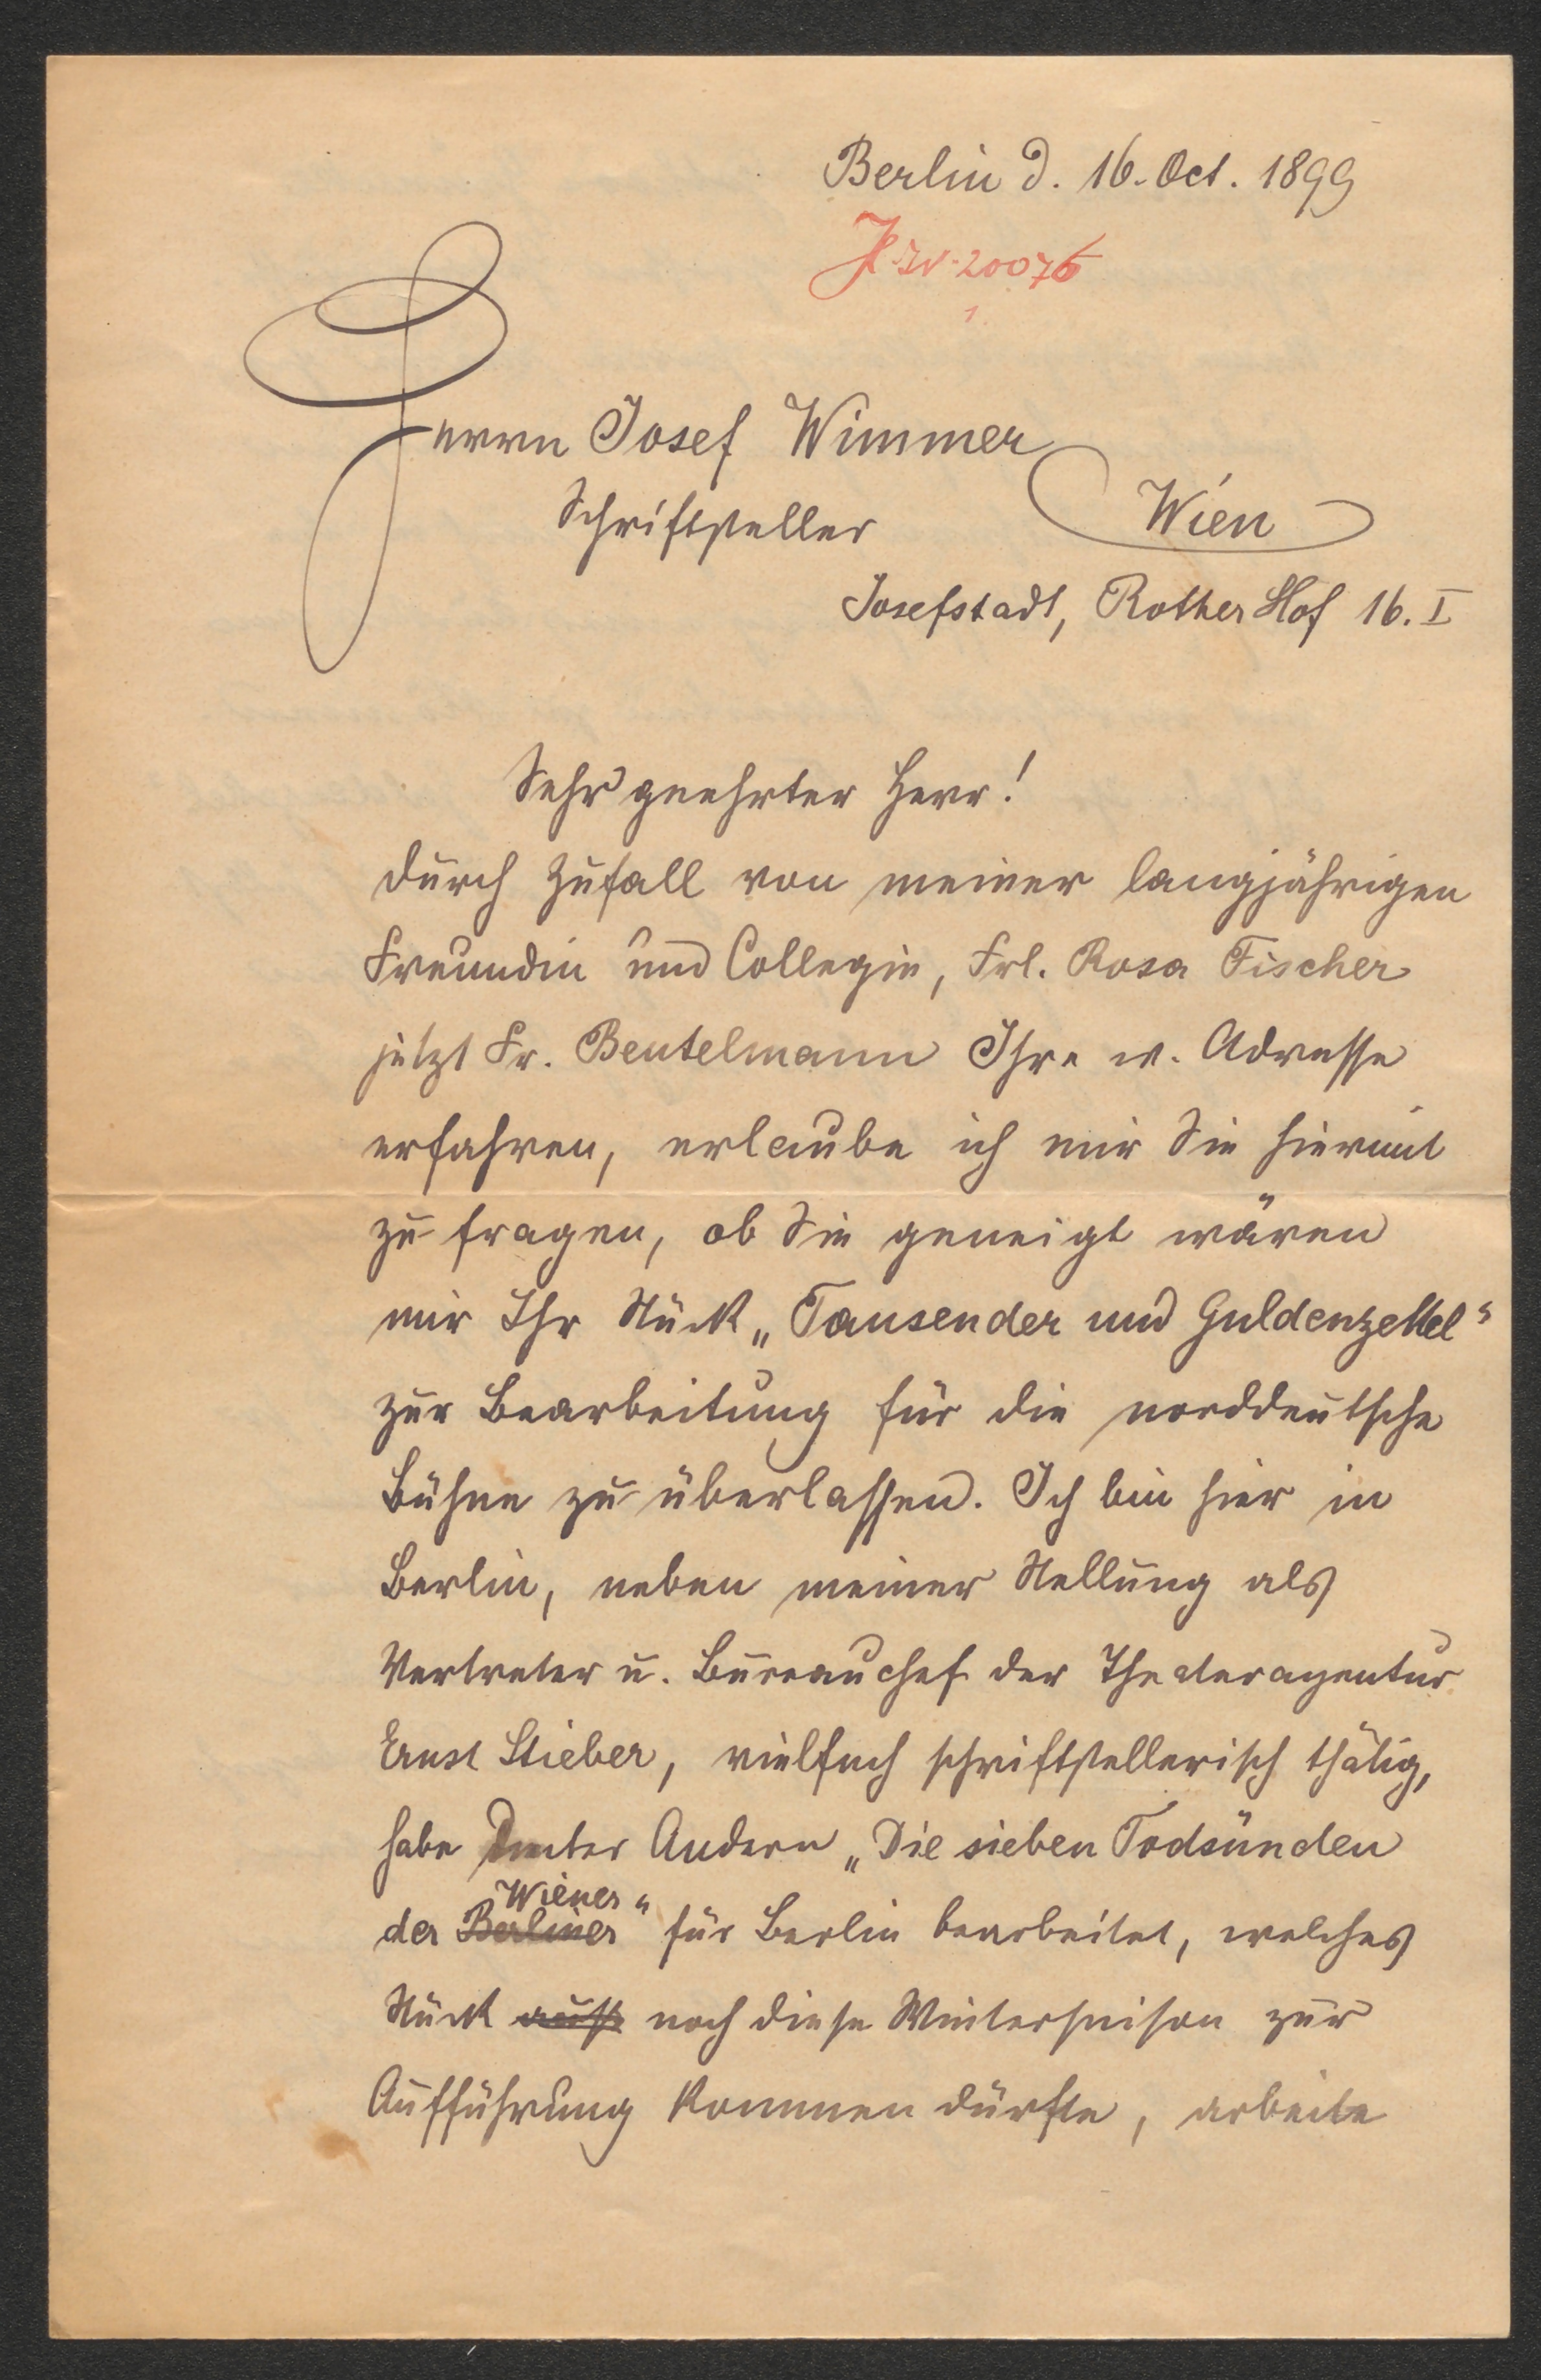 Berlin d. 16. Oct. 1899
Herrn Josef Wimmer
Schriftsteller
Wien
Josefstadt, Rother Hof 16. I
Sehr geehrter Herr!
Durch Zufall von meiner langjährigen
Freundin und Collegin, Frl. Rosa Fischer
jetzt Fr. Beutelmann Ihre w. Adresse
erfahren, erlaube ich mir Sie hiermit
zu fragen, ob Sie geneigt wären
mir Ihr Stück „Tausender und Guldenzettel"
zur Bearbeitung für die norddeutsche
Bühne zu überlassen. Ich bin hier in
Berlin, neben meiner Stellung als
Vertreter u. Bureauchef der Theateragentur
Ernst Stieber, vielfach schriftstellerisch thätig,
habe unter Andern „Die sieben Todsünden
Wiener"
der Berliner" für Berlin bearbeitet, welches
Stück noch diese Wintersaison zur
Aufführung kommen dürfte, arbeite